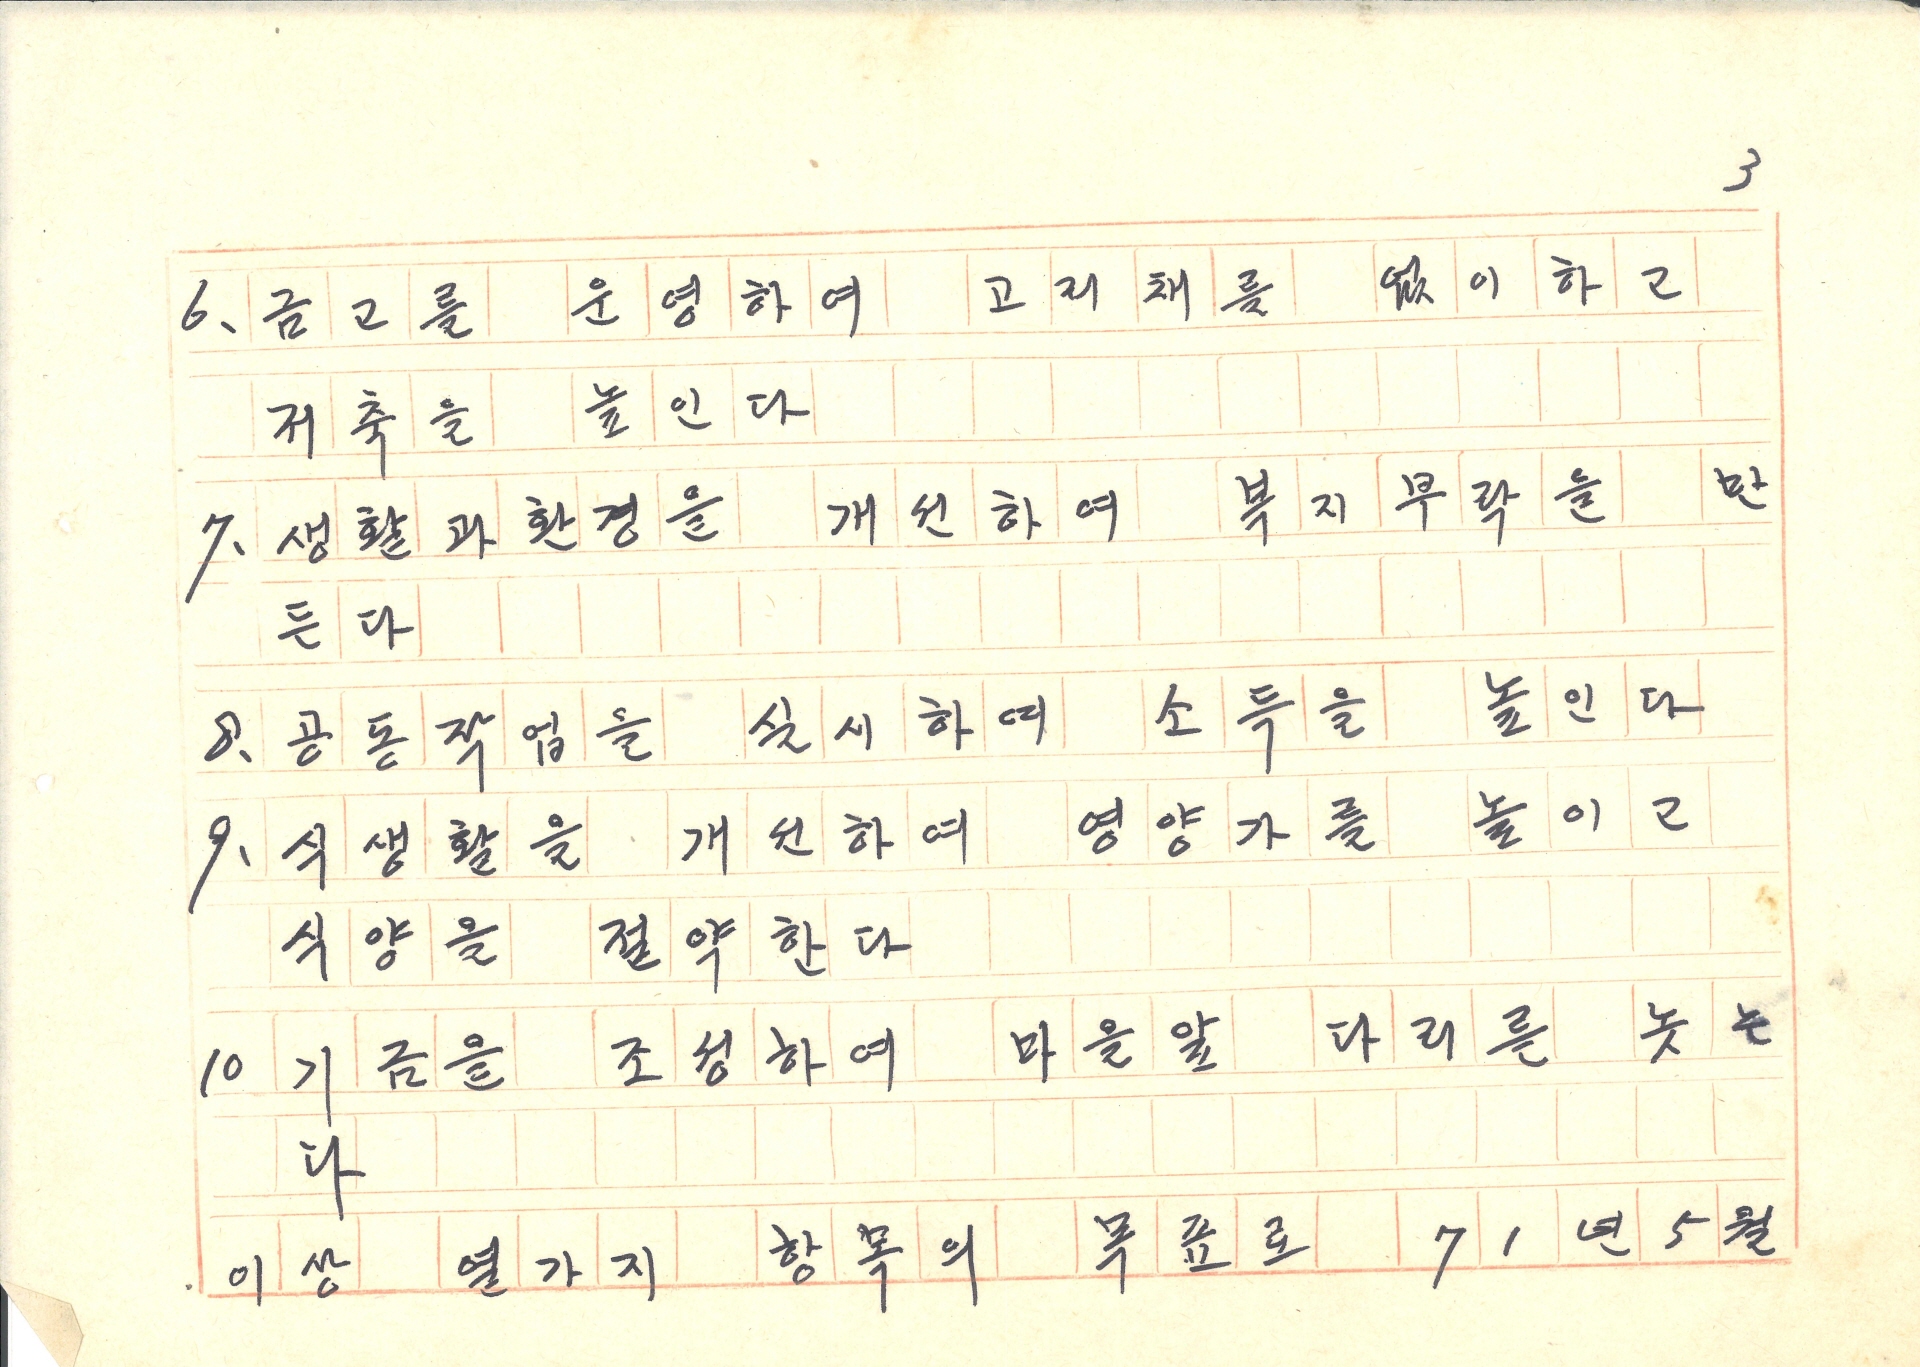 3
6、금고를 운영하여 고리채를 없이하고
저축을 높인다
7、생활과환경을 개선하여 복지부락을 만
든다
8、공동작업을 실시하여 소득을 높인다
9、식생활을 개선하여 영양가를 높이고
식양을 절약한다
10 기금을 조성하여 마을앞 다리를 놋는
다
이상 열가지 항목의 목표로 71년5월